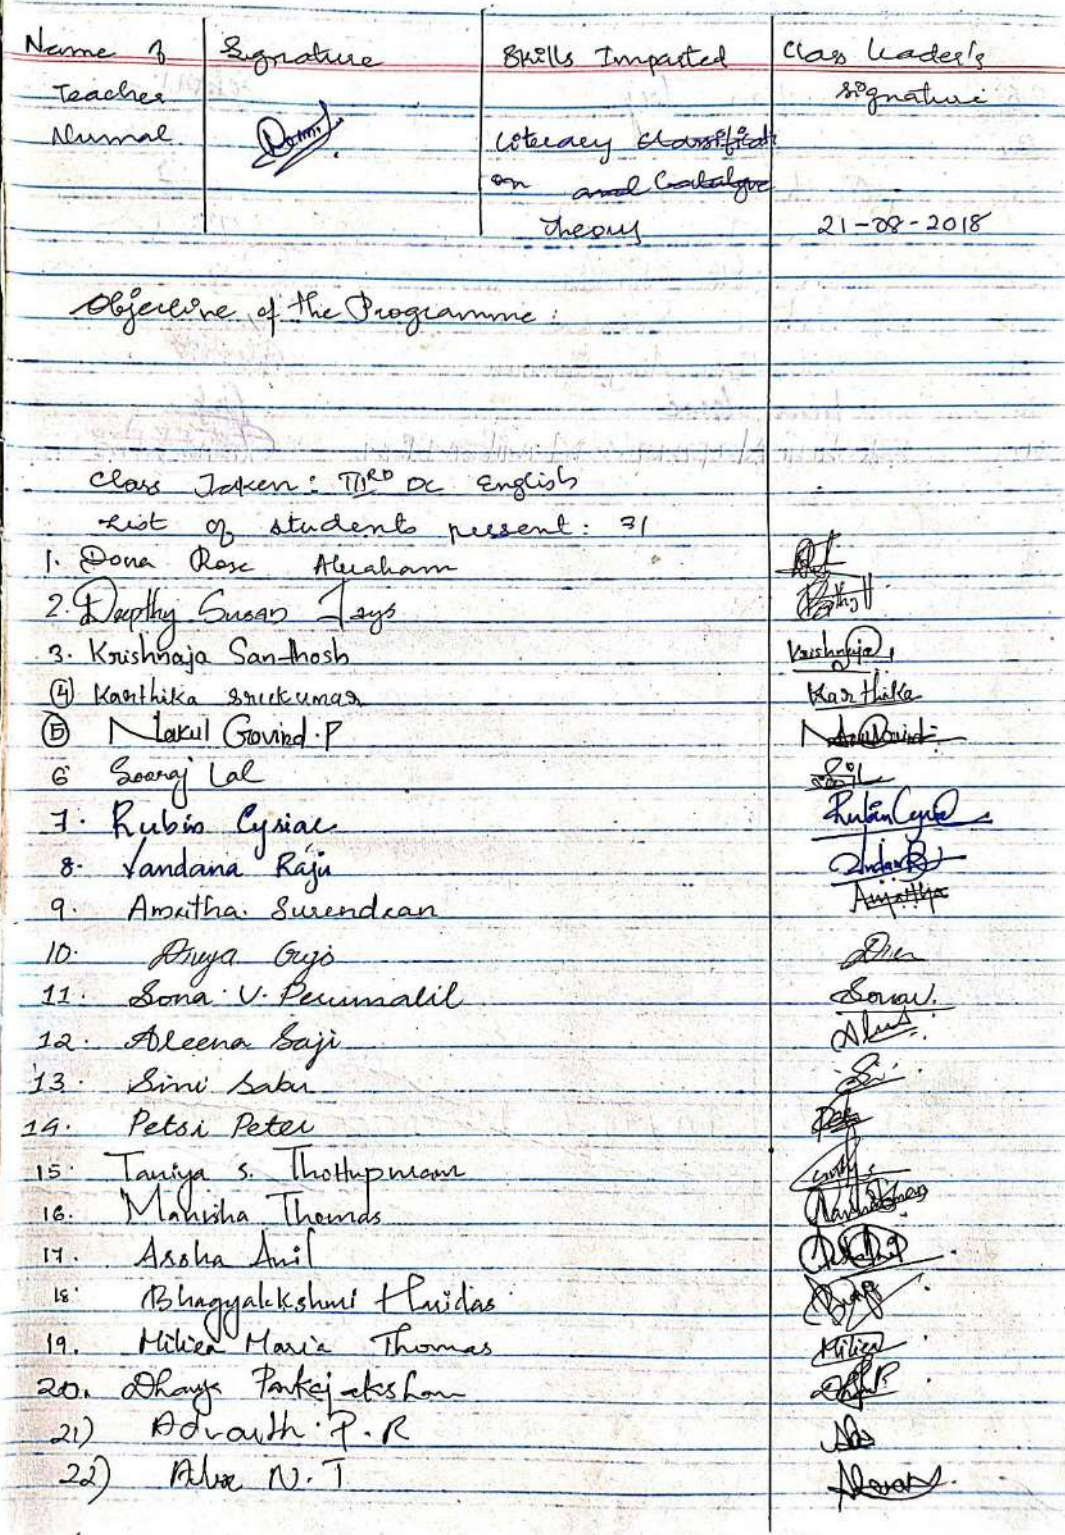 Name of Signature Skills Imparted Class leader's
Teacher signature
Nirmal. Literacy Classificati
on and Catalgue
theory 21-08-2018
Objective of the Programme:
Class Taken: IIIRD DC English
List of students present: 31
1. Dona Rose Abraham
2. Deepthy Susan Jays
3. Krishnaja Santhosh Krishnaja
4 Karthika Sreekumar Karthika
5 Nakul Govind.P
6 Sooraj Lal
7. Rubin Cyriac Rubin Cyriac
8. Vandana Raju
9. Amritha. Surendran Amritha
10. Gigi
11. Sona. V. Perumalil Sona V.
12. Aleena Saji
13. Simi Sabu
14. Petsi Peter
15. Taniya S. Thottupuram
16. Manisha Thomas
17. Assha Anil
18. Bhagyalekshmi Haridas
19. Miliea Maria Thomas Miliea
20. Dhanya Pankajakshan
21) Advaith. P. R
22) N. T